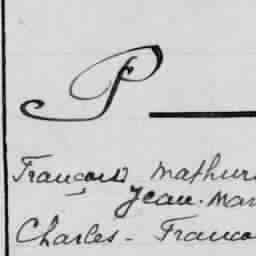 P
François, Mathuri
Jean-Mar
Charles-Franço